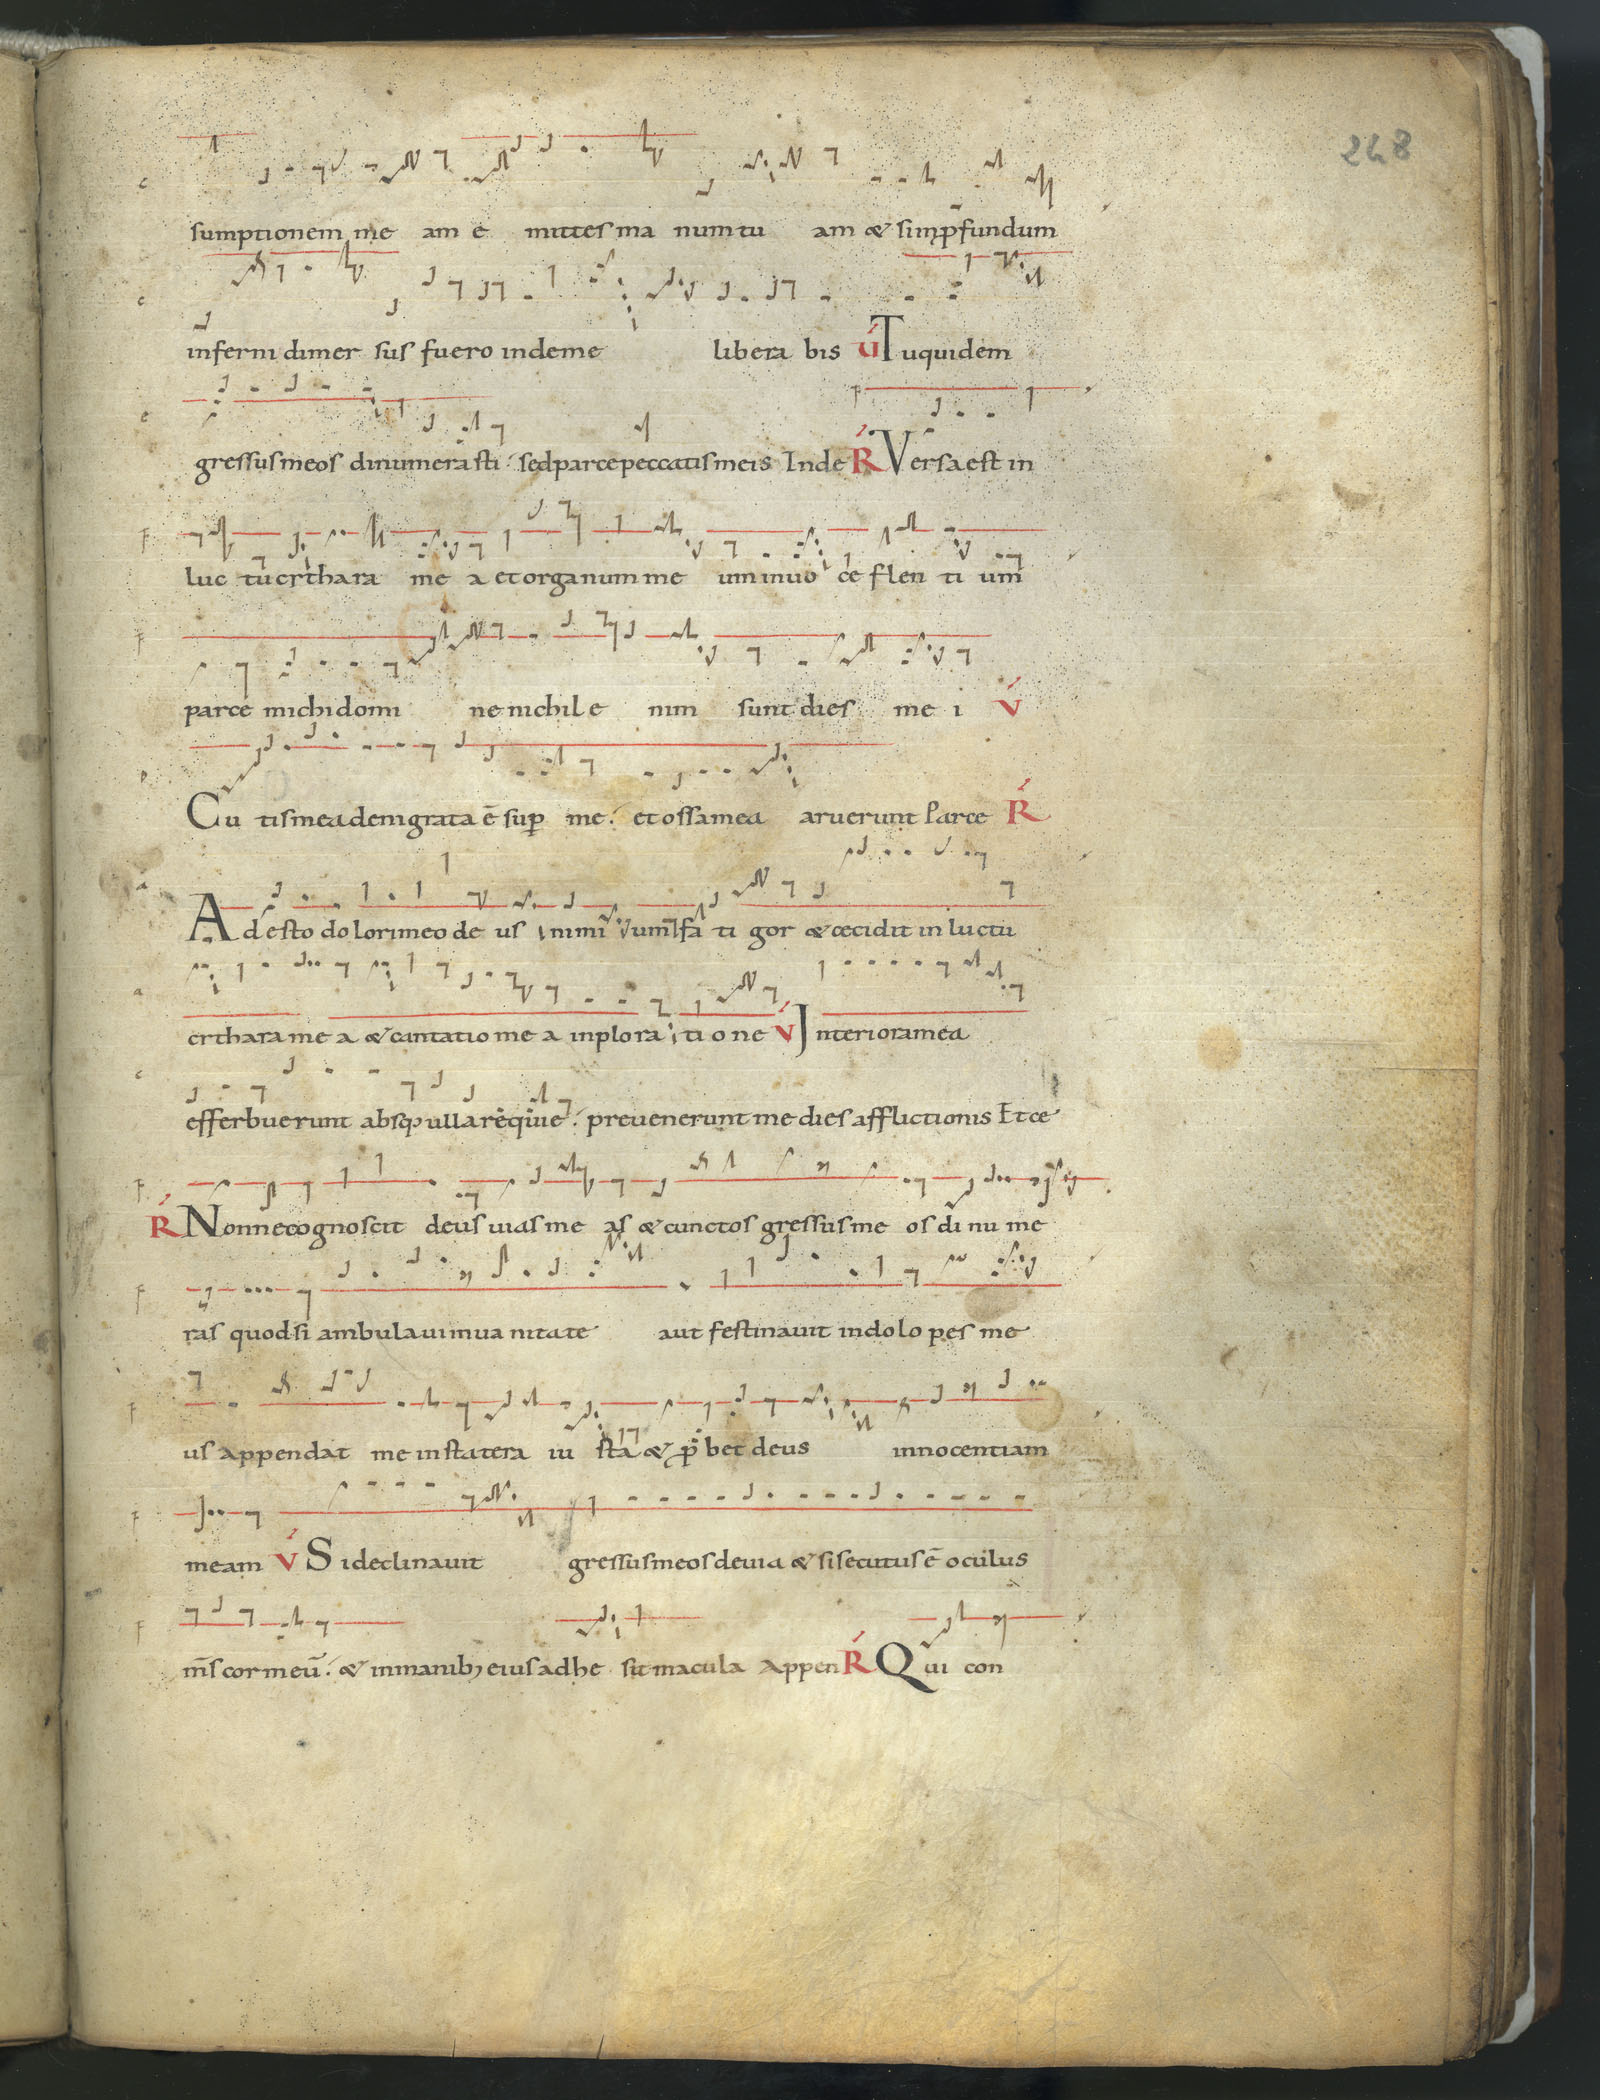 248
sumptionem me am e mittes ma num tu am & si in p̄fundum
inferni dimer sus fuero inde me libera bis V̓ Tu quidem
gressus meos dinumerasti sed parce peccatis meis Inde R̓ Versa est in
luc tu cythara me a et organum me um in uo ce flen ti um
parce michi domi ne nichil e nim sunt dies me i V̓
Cu tis mea denigrata ē sup me. et ossa mea aruerunt Parce R̓
Adesto dolori meo de us nimi um fa ti gor & cecidit in luctu
cythara me a & cantatio me a in plora ti o ne V̓ Interiora mea
efferbuerunt absq ulla requie. preuenerunt me dies afflictionis Et ce
R̓ Nonne cognoscit deus uias me as & cunctos gressus me os di nu me
ras quod si ambulaui in ua nitate aut festinauit in dolo pes me
us appendat me in statera iu sta & p bet deus innocentiam
meam V̓ Si declinauit gressus meos de uia & si secutus ē oculus
m̄s cor meū. & in manib; eius adhe sit macula Appen R̓ Qui con